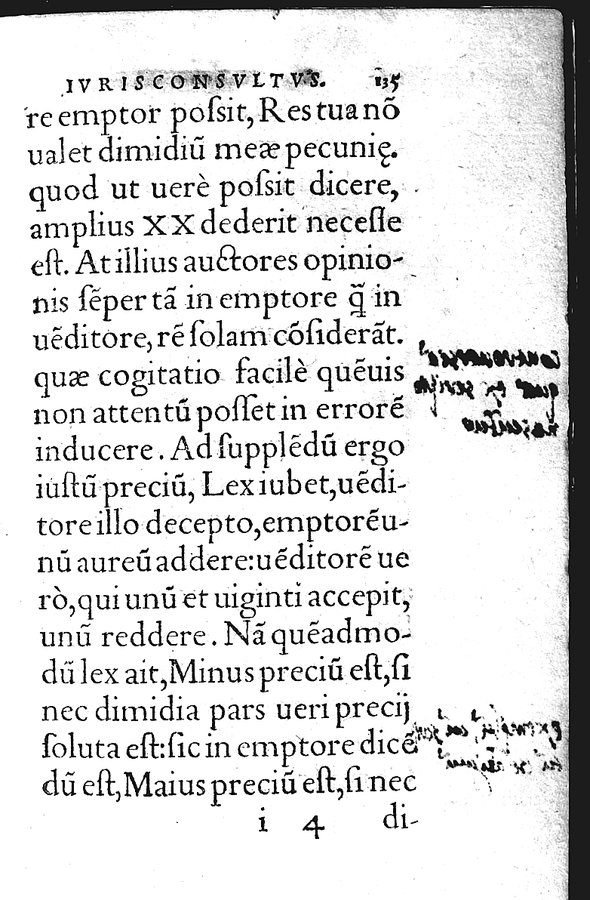 IVRISCONSVLTVS. 135
re emptor poſsit, Res tua nõ
ualet dimidiũ meæ pecunię.
quod ut uerè poſsit dicere,
amplius XX dederit neceſſe
eſt. At illius auctores opinio-
nis ſẽper tã in emptore q̃ in
uẽditore, rẽ ſolam cõſiderãt.
quæ cogitatio facilè quẽuis
non attentũ poſſet in errorẽ
inducere. Ad ſupplẽdũ ergo
iuſtũ preciũ, Lex iubet, uẽdi-
tore illo decepto, emptorẽ u-
nũ aureũ addere: uẽditorẽ ue
rò, qui unũ et uiginti accepit,
unũ reddere. Nã quẽadmo-
dũ lex ait, Minus preciũ eſt, ſi
nec dimidia pars ueri precij
ſoluta eſt: ſic in emptore dicẽ
dũ eſt, Maius preciũ eſt, ſi nec
i 4 di-